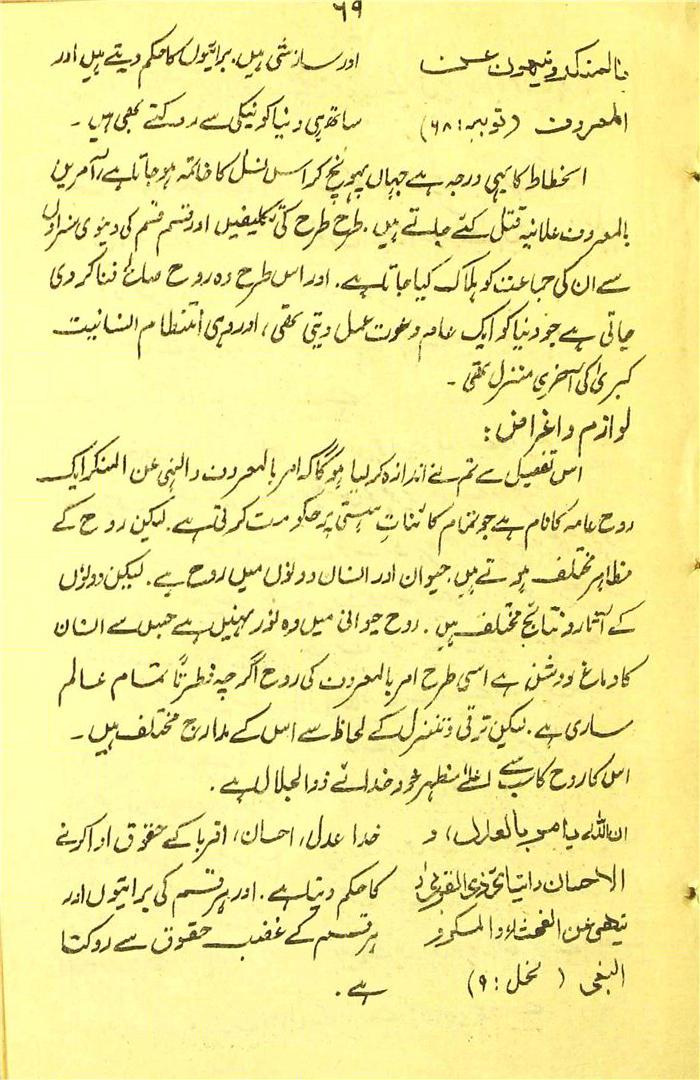 ۶۹
بالمنکر وینھون عن اور سازشی ہیں، برائیوں کا حکم دیتے ہیں اور
المعروف (توبہ: ۶۸) ساتھ ہی دنیا کو نیکی سے روکتے بھی ہیں۔
انحطاط کا یہی درجہ ہے جہاں پہونچ کر اس نسل کا خاتمہ ہو جاتا ہے، آمرین
بالمعروف علانیہ قتل کئے جاتے ہیں۔ طرح طرح کی تکلیفیں اور قسم قسم کی دنیوی سزاؤں
سے ان کی جماعت کو ہلاک کیا جاتا ہے۔ اور اس طرح وہ روح صالح فنا کر دی
جاتی ہے جو دنیا کو ایک عام دعوت عمل دیتی تھی، اور وہی انتظام انسانیت
کبریٰ کی آخری منزل تھی۔
لوازم و اغراض:
اس تفصیل سے تم نے اندازہ کر لیا ہوگا کہ امر بالمعروف والنہی عن المنکر ایک
روح عامہ کا نام ہے جو تمام کائنات ہستی پر حکومت کرتی ہے۔ لیکن روح کے
مظاہر مختلف ہوتے ہیں۔ حیوان اور انسان دونوں میں روح ہے۔ لیکن دونوں
کے آثار و نتائج مختلف ہیں۔ روح حیوانی میں وہ نور نہیں ہے جس سے انسان
کا دماغ روشن ہے اسی طرح امر بالمعروف کی روح اگرچہ فطرتاً تمام عالم
ساری ہے۔ لیکن ترقی و تنزل کے لحاظ سے اس کے مدارج مختلف ہیں۔
اس کا روح کا سب سے اعلےٰ مظہر خود خدائے ذوالجلال ہے۔
ان اللہ یامر بالعدل، و خدا عدل، احسان، اقربا کے حقوق ادا کرنے
الاحسان وایتائ ذی القربیٰ و کا حکم دیتا ہے۔ اور ہر قسم کی برائیوں اور
ینھی عن الفحشاء والمنکر و ہر قسم کے غضب حقوق سے روکتا
البغی (نحل: ۹) ہے۔